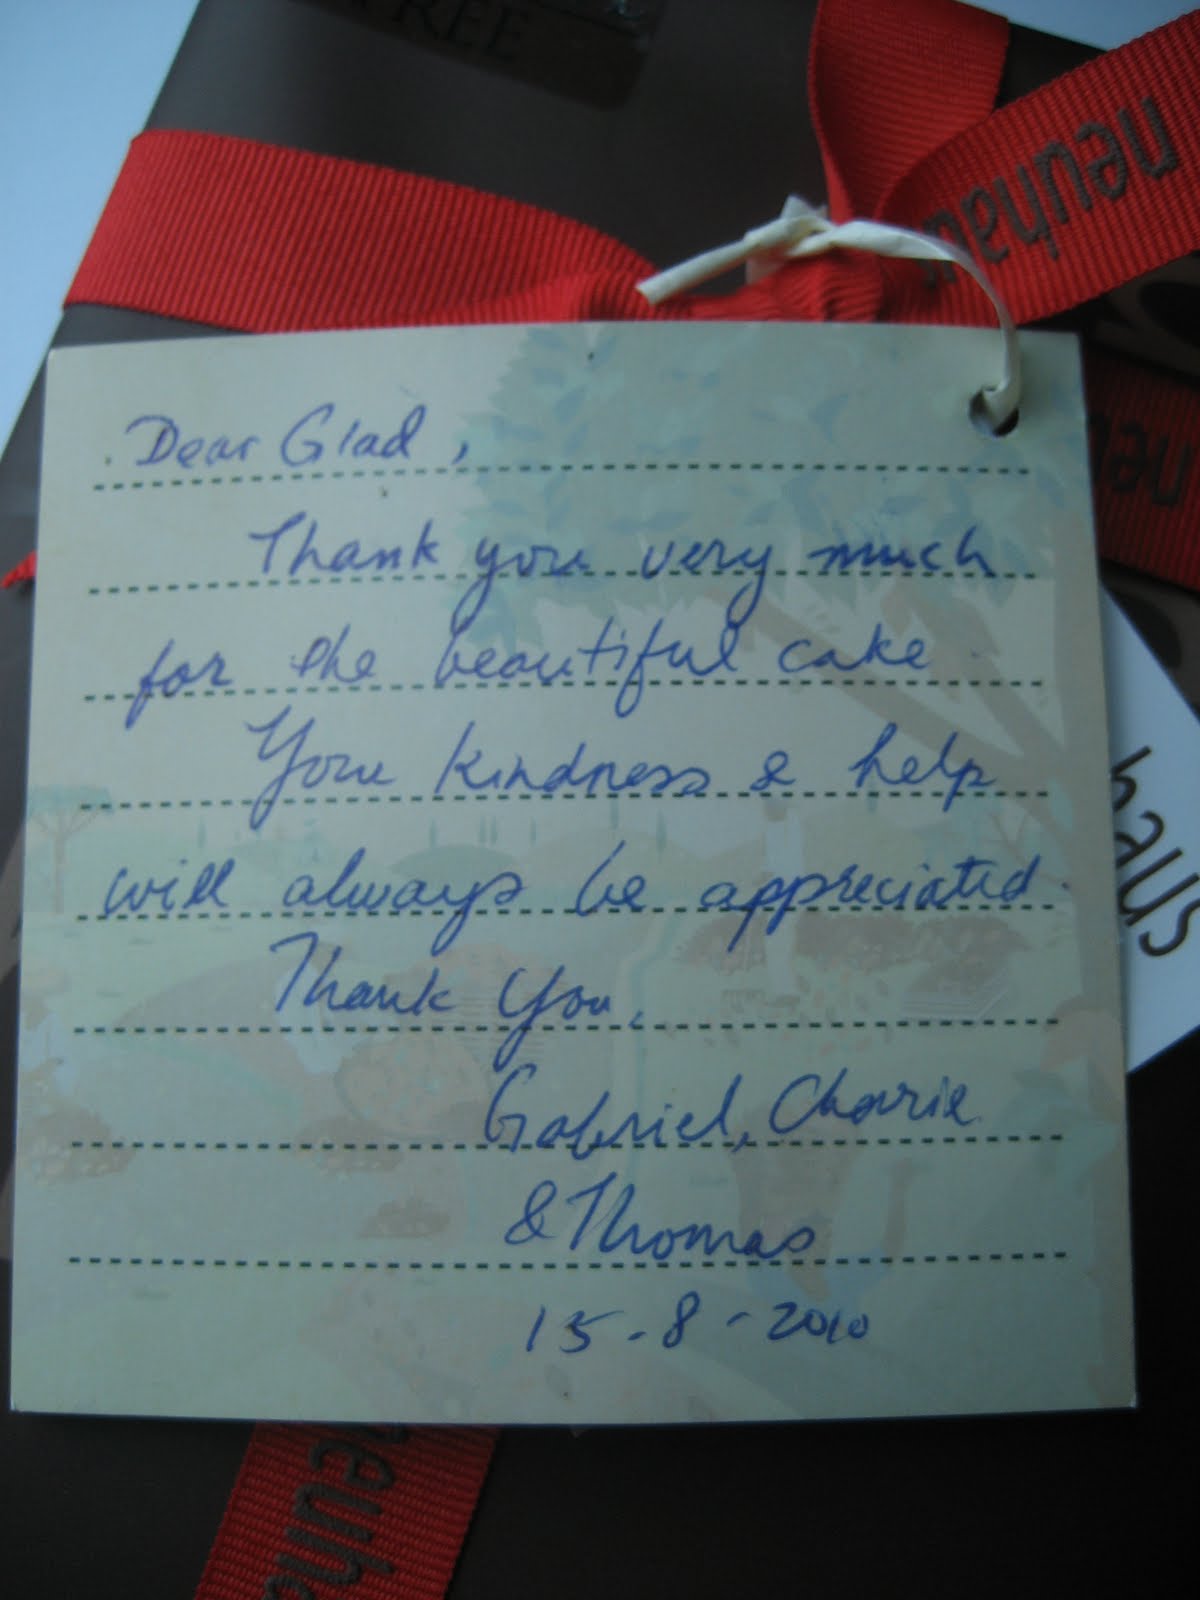 FREE
neuhau
neu
Dear Glad,
Thank you very much
for the beautiful cake.
Your kindness & help
will always be appreciated.
Thank You,
Gabriel,
& Thomas
15-8-2010
haus
neuha